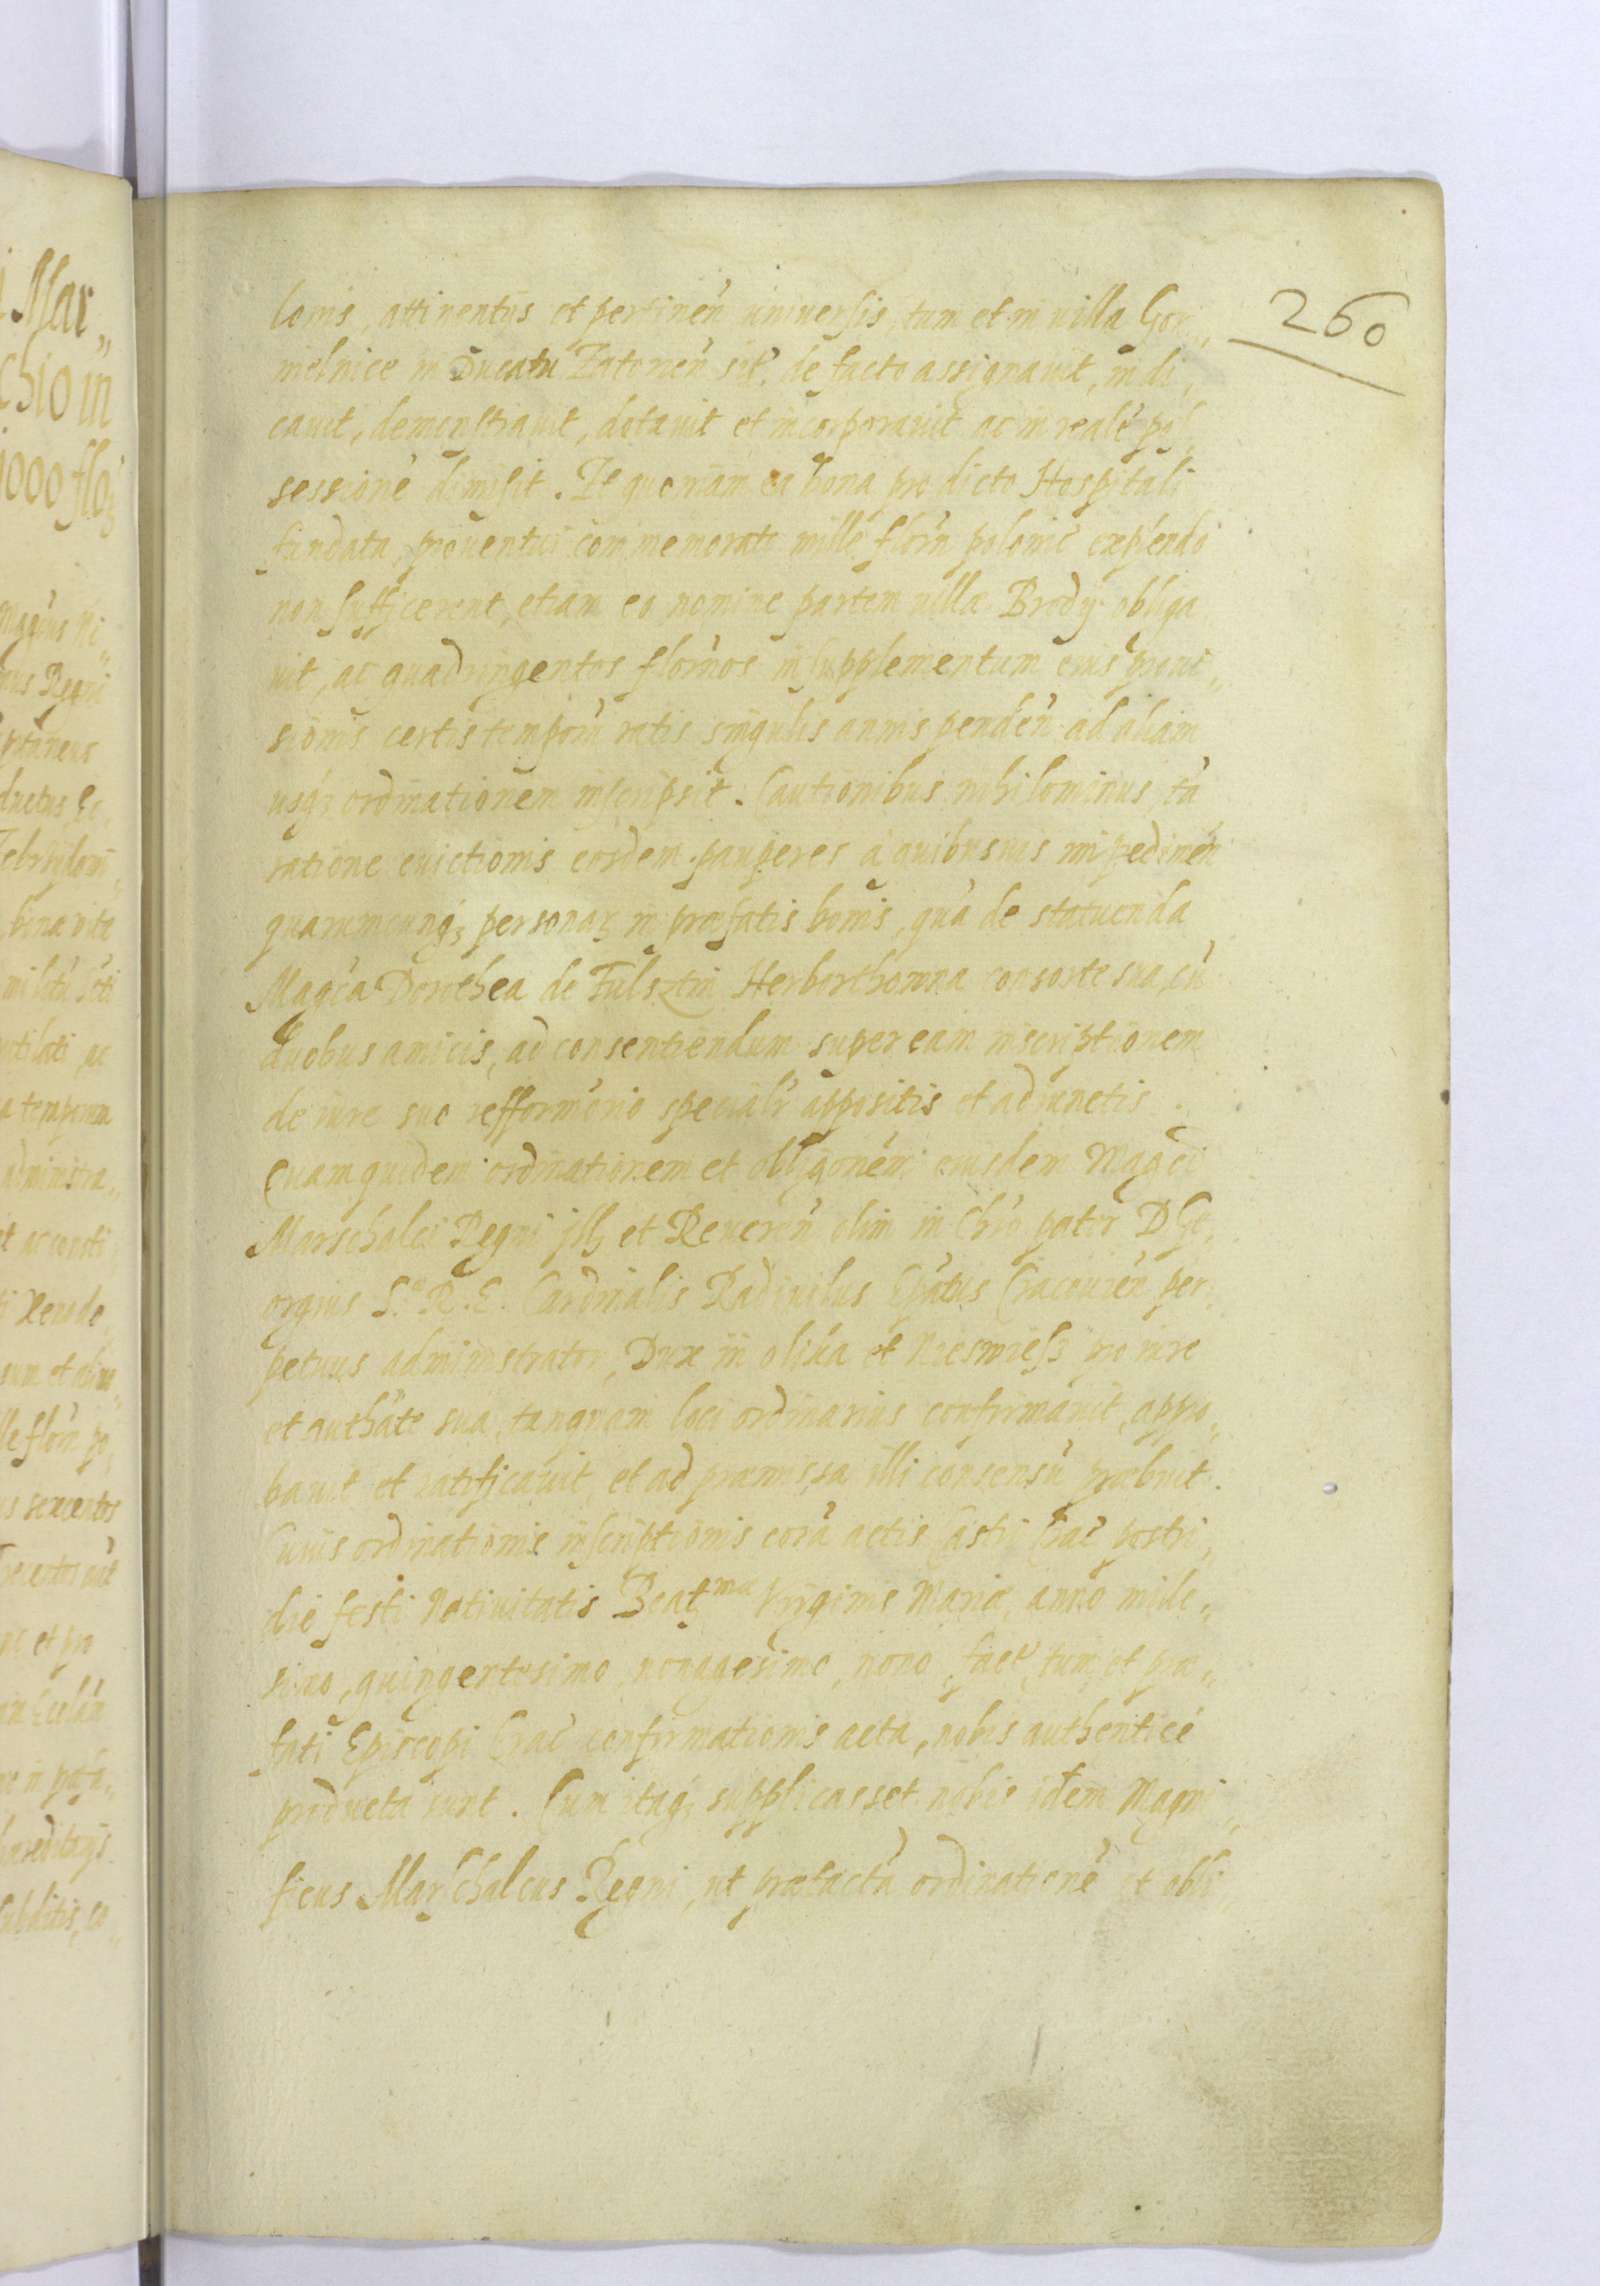 260
lonis, attinentijs et pertineń uniuersis, tum et in uilla Gor„
nielnice in Ducatu Zatorień sit. de facto assignauit, indi„
cauit, demonstrauit, dotauit et incorporauit ac in realē pos„
sessionē dimisit. Et quoniam ea bona pro dicto Hospitali
fundata, prouentui commemorato mille floŕn polonic̃ explendo
non sufficerent, etiam eo nomine partem uillæ Brody obliga„
uit, ac quadringentos floŕnos in supplementum eius proui„
sionis certis tempoŕu ratis singulis annis pendeń ad aliam
usq₃ ordinationem inscripsit. Cautionibus nihilominus, tā
ratione euictionis eosdem pauperes à quibusuis impedimeń
quarumcunq₃ personaꝝ in præfatis bonis, quā de statuenda
Magc̃a Dorothea de Fulsztin Herborthowna consorte sua, cū
duobus amicis, ad consentiendum super eam inscriptionem
de iure suo refformorio specialr̃ appositis et adiunctis.
Quam quidem ordinationem et obligonēm eiusdem Magc̃i
Marschalci Regni Ill₃ et Reueren̄ olim in Chr̃o pater D Ge„
orgius S.ᵃ R. E. Cardinalis Radiuilus Epātus Cracouień per„
petuus administrator, Dux in Olika et Nieswiesz pro iure
et authāte sua, tanquam loci ordinarius confirmauit, appro„
bauit et ratificauit, et ad præmissa illi consensū præbuit.
Cuius ordinationis inscriptionis corā actis Castri Crac̃ postri„
die festi Natiuitatis Beatᵐᵃᵉ Virginis Mariæ, anno mile„
simo, quingentesimo, nonagesimo, nono, fact̃ tum et præ„
fati Episcopi Crac̃ confirmationis acta, nobis authenticè
producta sunt. Cum itaq₃ supplicasset nobis idem Magni„
ficus Marschalcus Regni, ut præfactā ordinationē et obli„